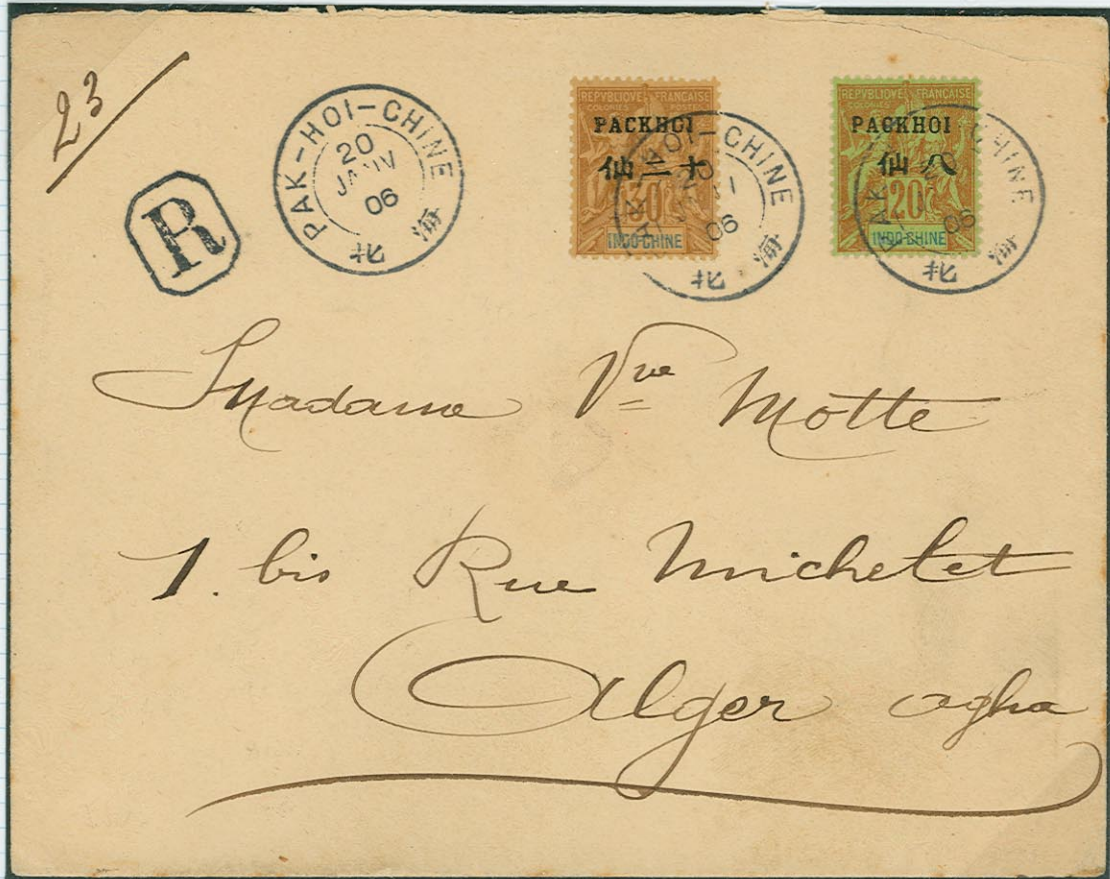 23
R
PAK-HOI-CHINE
20
JANV
06
北 海
REPVBLIQVE FRANÇAISE
COLONIES POSTES
PACKHOI
仙二十
30c
INDO-CHINE
HOI-CHINE
06
北 海
REPVBLIQVE FRANÇAISE
COLONIES
PACKHOI
仙八
20c
INDO-CHINE
PAK CHINE
06
北 海
Madame Vve Motte
1. bis Rue Michelet
Alger agha